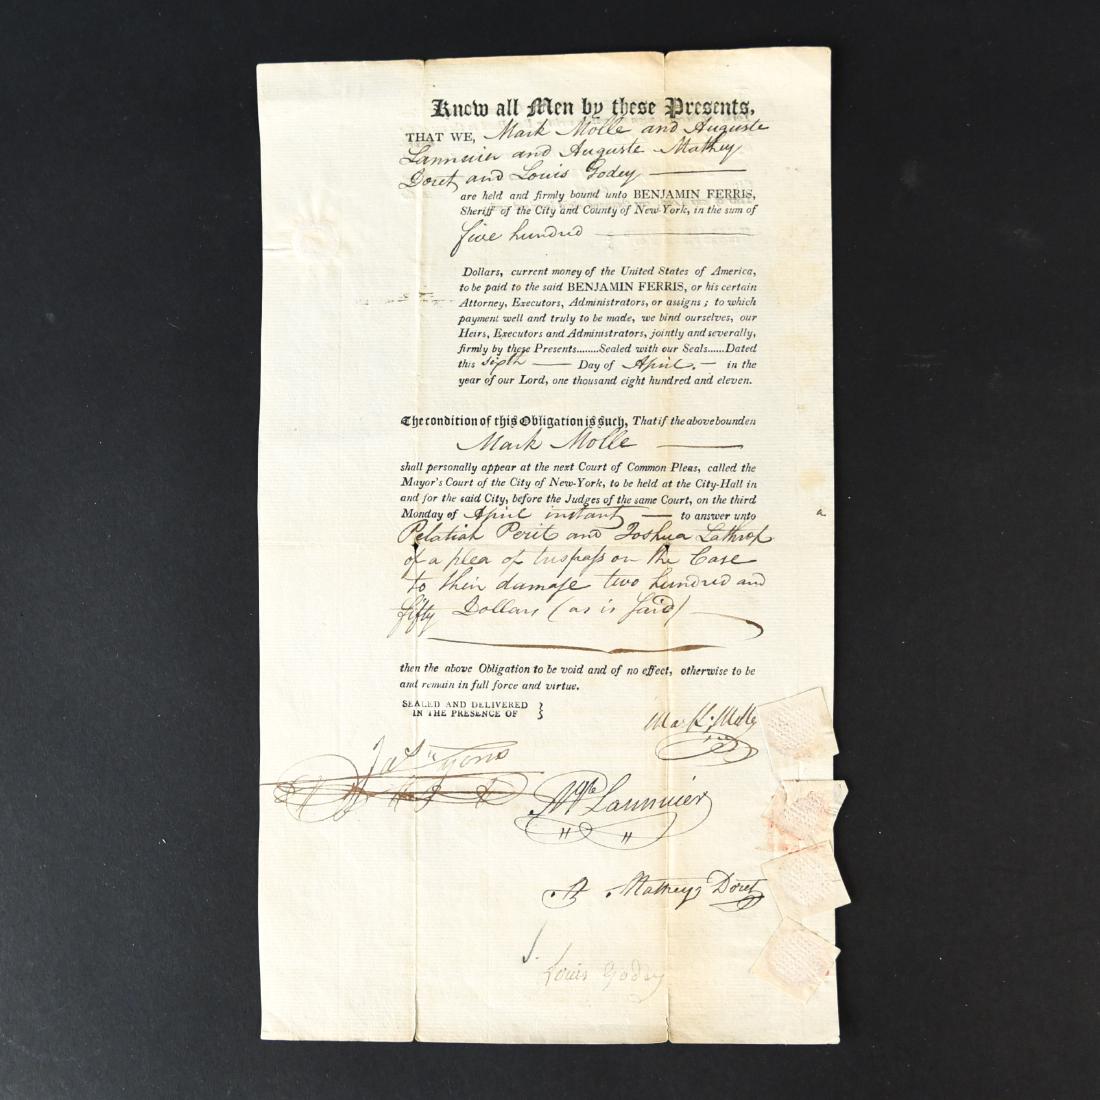 Know all Men by these Presents,
THAT WE, Mark Molle and Auguste
Lannuier and Auguste Mathey
Doret and Louis Godey
are held and firmly bound unto BENJAMIN FERRIS,
Sheriff of the City and County of New-York, in the sum of
five hundred
Dollars, current money of the United States of America,
to be paid to the said BENJAMIN FERRIS, or his certain
Attorney, Executors, Administrators, or assigns; to which
payment well and truly to be made, we bind ourselves, our
Heirs, Executors and Administrators, jointly and severally,
firmly by these Presents........Sealed with our Seals......Dated
this sixth Day of April. in the
year of our Lord, one thousand eight hundred and eleven.
The condition of this Obligation is such, That if the above bounden
Mark Molle
shall personally appear at the next Court of Common Pleas, called the
Mayor's Court of the City of New-York, to be held at the City-Hall in
and for the said City, before the Judges of the same Court, on the third
Monday of April instant to answer unto
Pelatiah Perit and Joshua Lathrop
of a plea of trespass on the Case
to their damage two hundred and
fifty Dollars (as is said)
then the above Obligation to be void and of no effect, otherwise to be
and remain in full force and virtue.
SEALED AND DELIVERED
IN THE PRESENCE OF }
Mark Molle
Jas Lyons
Lannuier
A Mathey Doret
Louis Godey